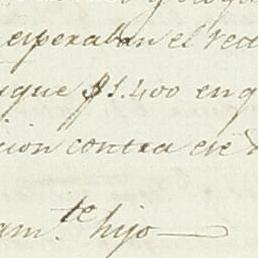 esperaban el rec
que $1.400 en q
cion contra ese
am.te hijo